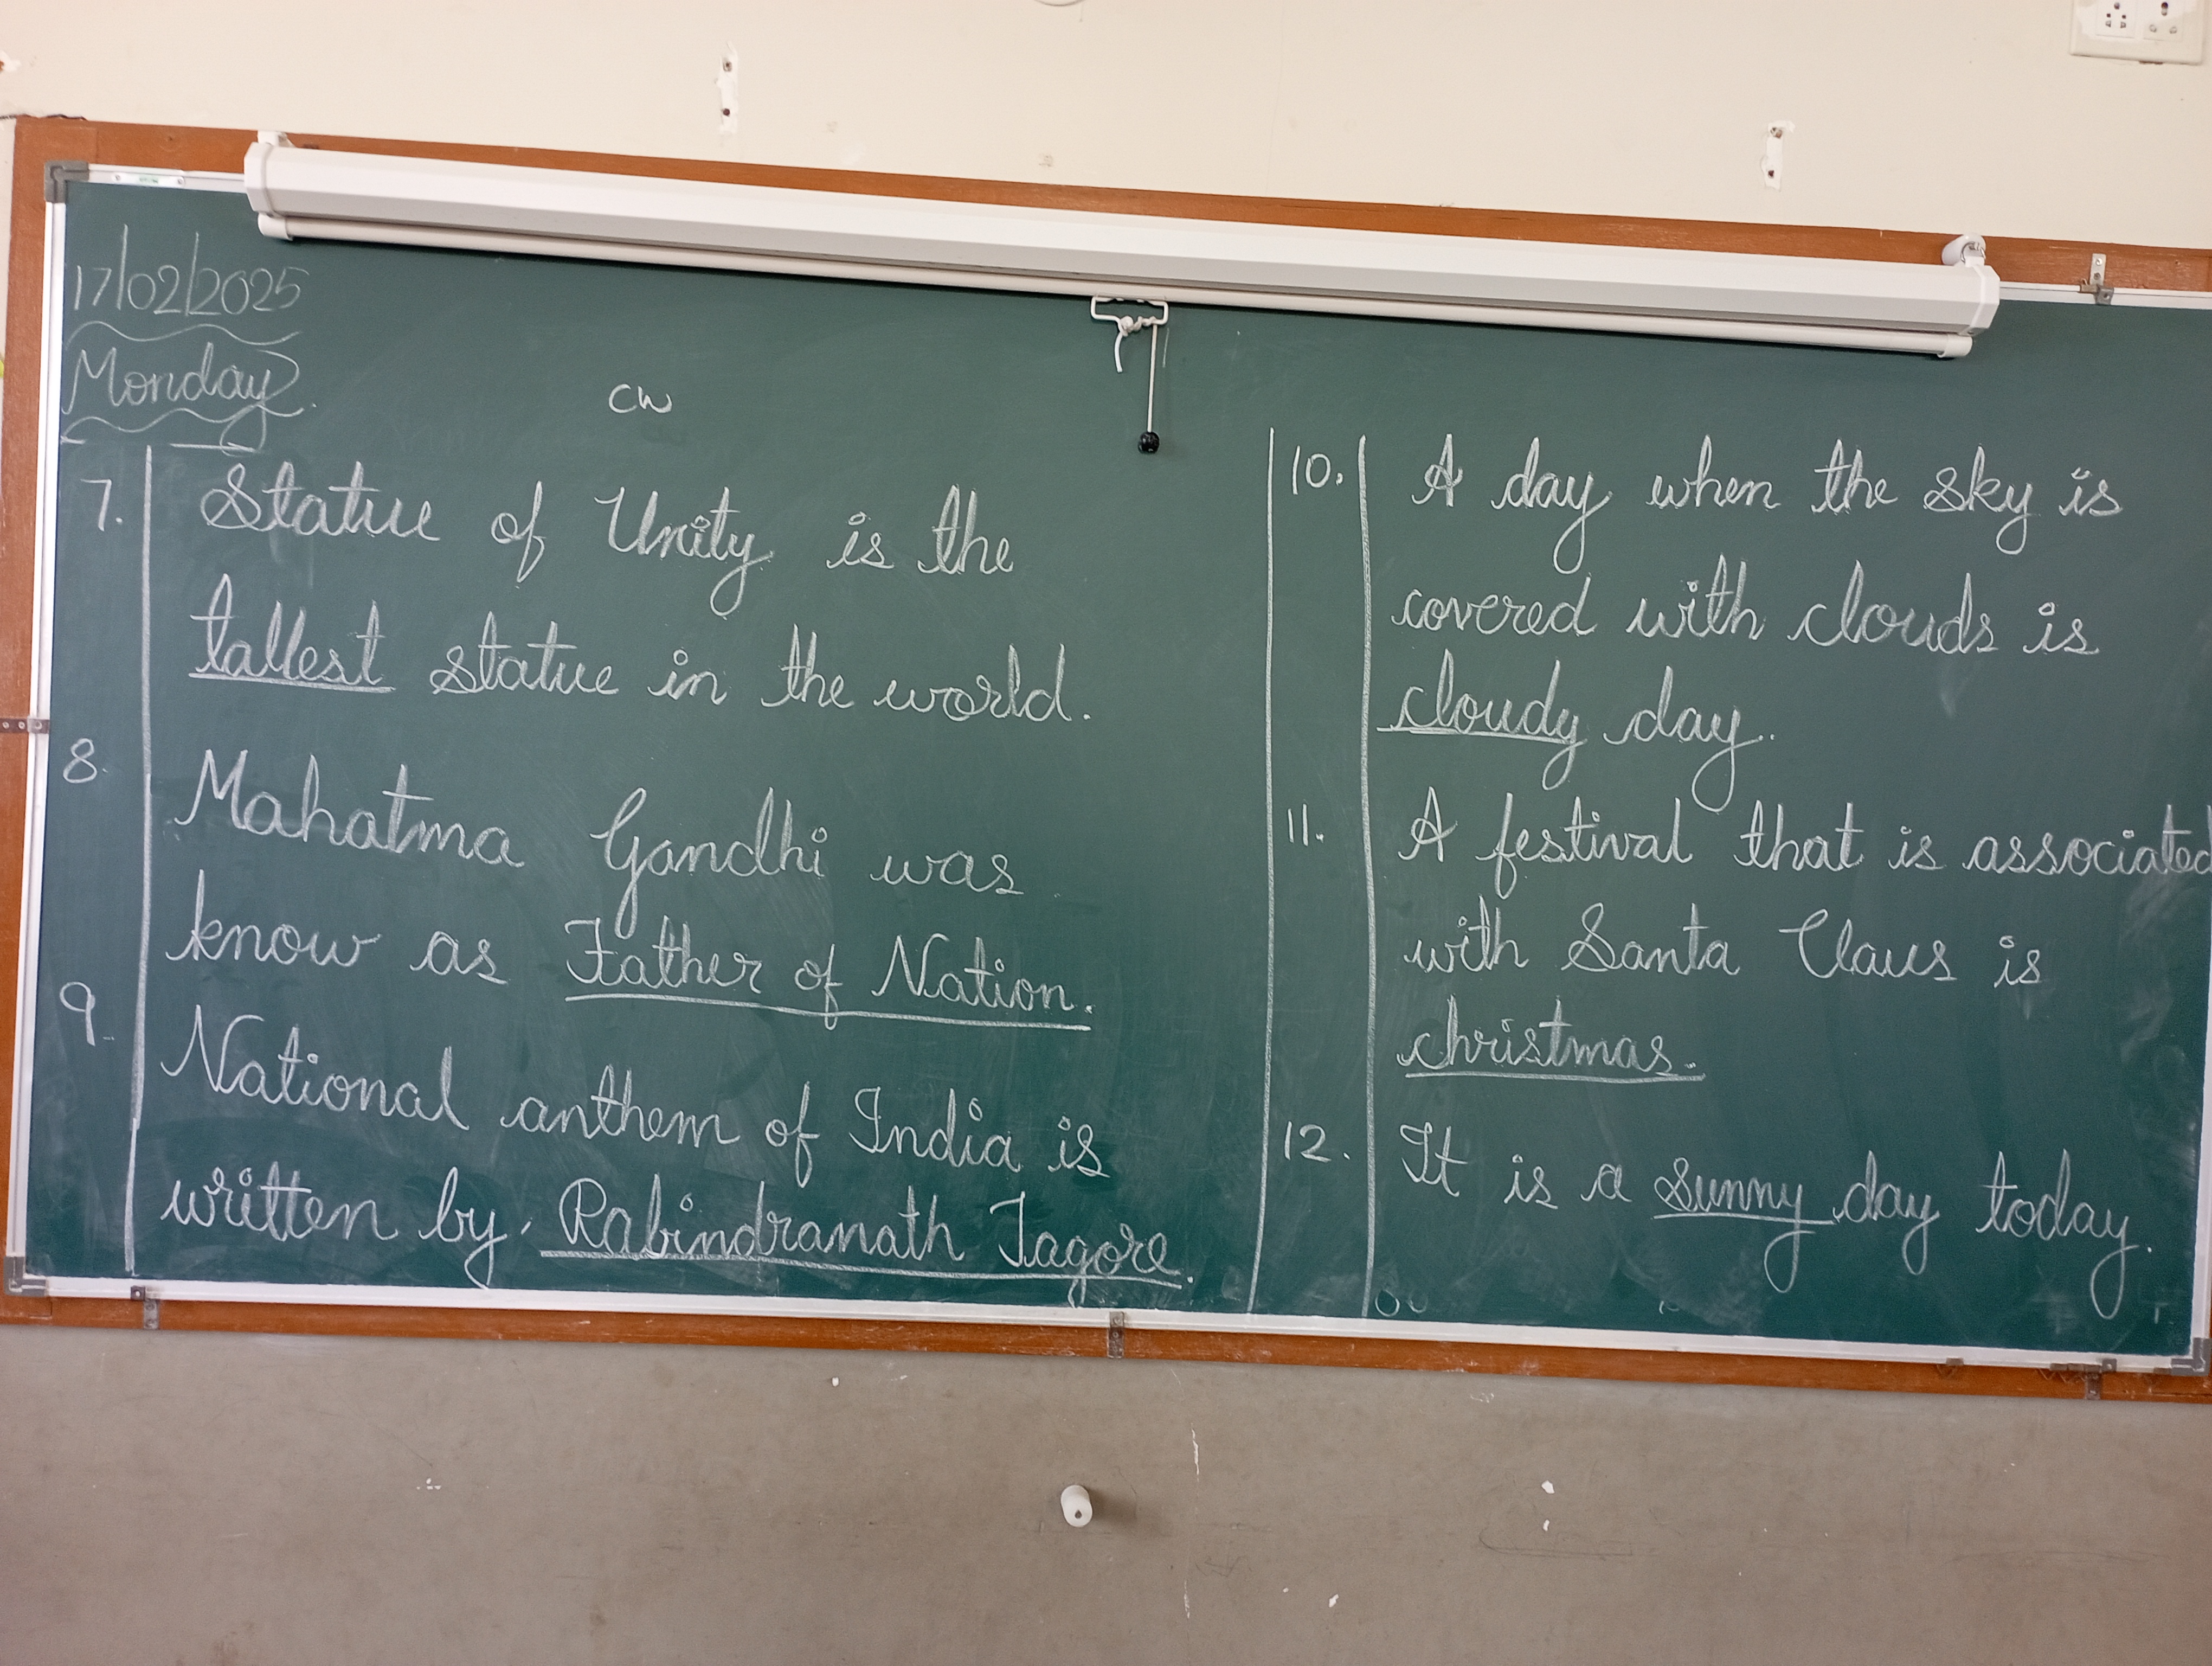 17/02/2025
Monday.
CW
7. Statue of Unity is the
tallest statue in the world.
8. Mahatma Gandhi was
know as Father of Nation.
9. National anthem of India is
written by Rabindranath Tagore.
10. A day when the sky is
covered with clouds is
cloudy day.
11. A festival that is associated
with Santa Claus is
christmas.
12. It is a sunny day today.